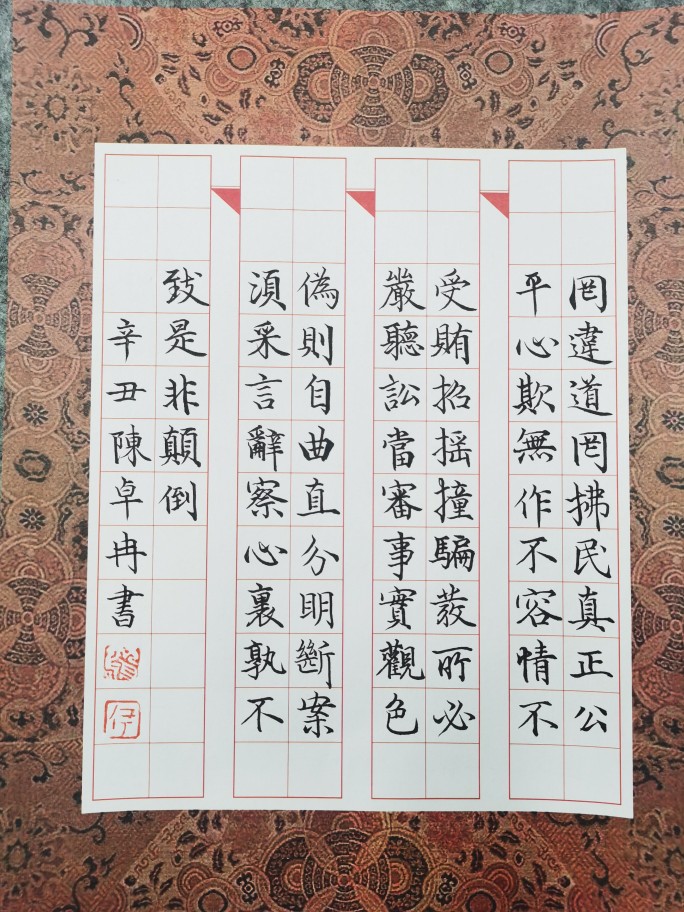 罔違道罔拂民真正公
平心欺無作不容情不
受賄招摇撞騙嚴所必
嚴聽訟當審事實觀色
偽則自曲直分明斷案
須采言辭察心裏孰不
致是非顛倒
辛丑陳卓冉書